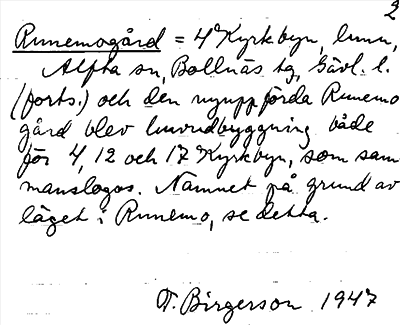 2
Runemogård = 4 Kyrkbyn,
Alfta sn, Bollnäs tg, Gävl. l.
(forts.) och den nyuppförda Runemo
gård blev huvudbyggning både
för 4, 12 och 17 Kyrkbyn, som sam
manslogos. Namnet på grund av
läget i Runemo, se detta.
T. Birgerson 1947